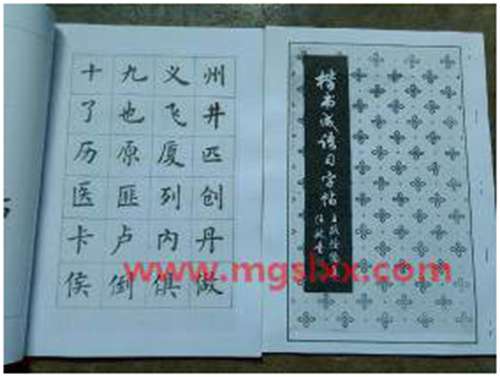 十九义州
了也飞井
历原厦匹
医匪列创
卡卢内丹
侯倒俱做
楷书成语习字帖
www.mgslxx.com